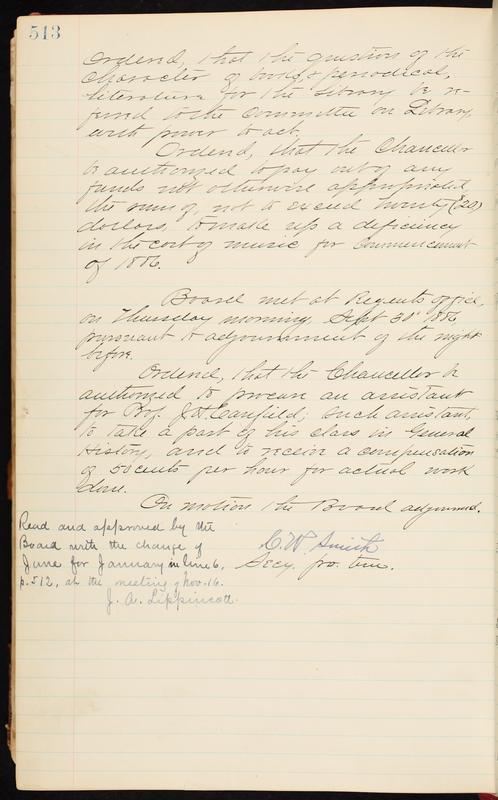 513
Ordered, that the question of the
character of books & periodical,
literature for the Library be re-
ferred to the Committee on Library,
with power to act.
Ordered, that the Chancellor
be authorized to pay out of any
funds not otherwise appropriated,
the sum of, not to exceed twenty (20)
dollars, to make up a deficiency
in the cost of music for Commencement
of 1886.
Board met at Regents office,
on Thursday morning, Sept 1886,
pursuant to adjournment of the night
before.
Ordered, that the Chancellor be
authorized to procure an assistant
for Prof. J.H. Canfield; such assistant,
to take a part of his class in General
History, and to receive a compensation
of 50 cents per hour for actual work
done.
On motion the Board adjourned.
C. W. Smith
Secy. pro. tem.
Read and approved by the
Board with the change of
June for January in line 6,
p. 512, at the meeting of Nov. 16.
J. A. Lippincott.